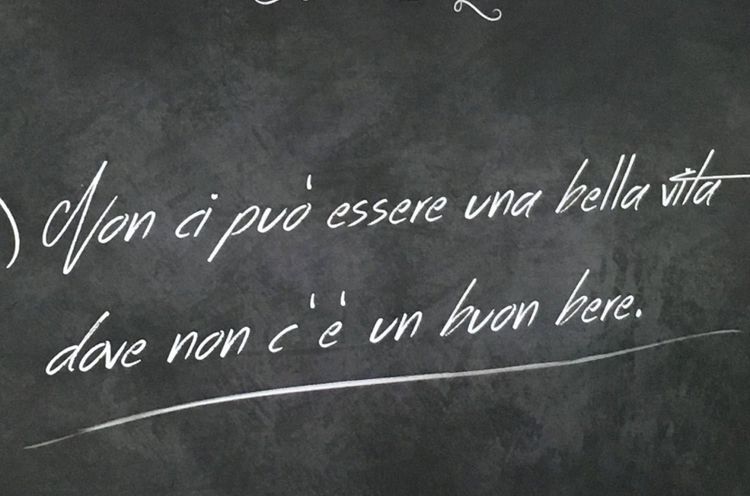 Non ci può essere una bella vita
dove non c'è un buon bere.